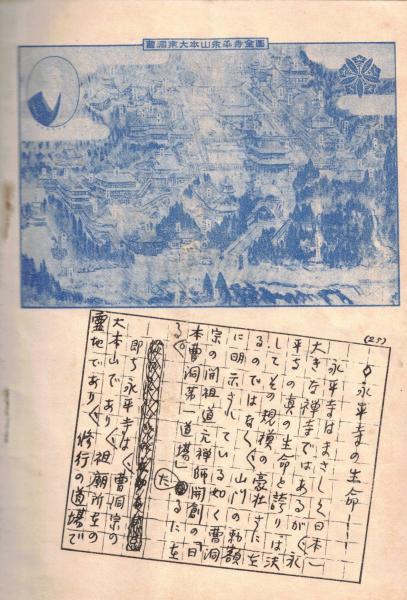 曹洞宗大本山永平寺全圖
(25)
◇永平寺の生命――
永平寺はまさしく日本一
大きな禅寺ではあるが、永
平寺の真の生命と誇りは決
してその規模の豪壮さに在
るのではなく、山門の勅額
に明示されている如く曹洞
宗の開祖道元禅師開創の「日
本曹洞第一道場」たるに在
る。
即ち永平寺は、曹洞宗の
大本山であり、祖廟所在の
霊地であり、修行の道場で